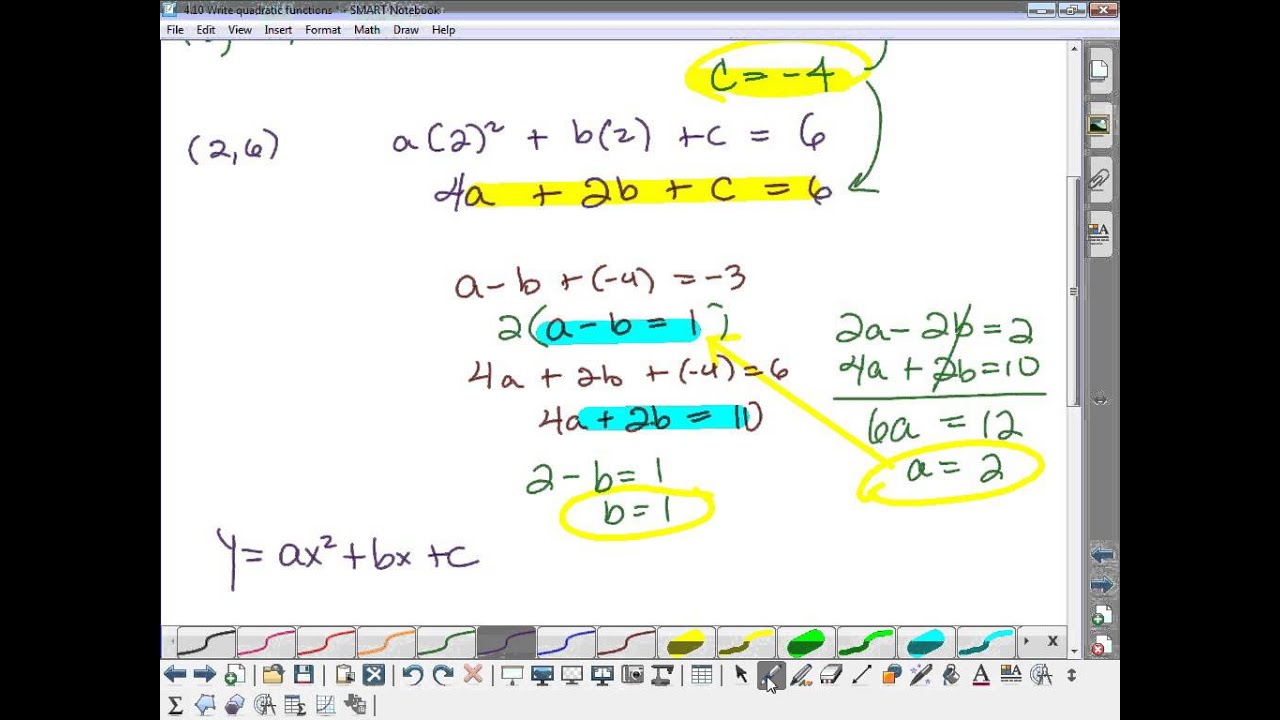 4.10 Write quadratic functions * - SMART Notebook
File Edit View Insert Format Math Draw Help
c = -4
(2,6) a(2)² + b(2) + c = 6
4a + 2b + c = 6
a - b + (-4) = -3
2(a - b = 1)
4a + 2b + (-4) = 6
4a + 2b = 10
2 - b = 1
b = 1
2a - 2b = 2
4a + 2b = 10
6a = 12
a = 2
y = ax² + bx + c